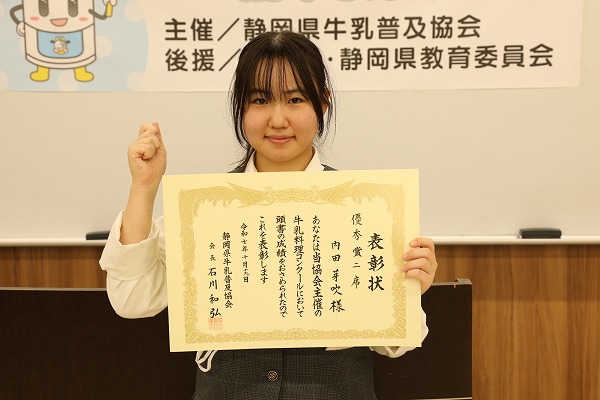 主催／静岡県牛乳普及協会
後援／・静岡県教育委員会
表彰状
優秀賞二席
内田芽吹様
あなたは当協会主催の
牛乳料理コンクールにおいて
頭書の成績をおさめられたので
これを表彰します
令和七年十月十八日
静岡県牛乳普及協会
会長 石川和弘